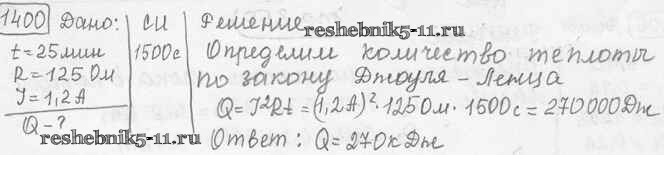 1400 Дано: СИ Решение
reshebnik5-11.ru
t=25мин 1500с Определим количество теплоты
R=125Ом по закону Джоуля-Ленца
J=1,2А Q=J²Rt=(1,2А)²·125Ом·1500с=270000Дж
Q-?
reshebnik5-11.ru
Ответ: Q=270кДж